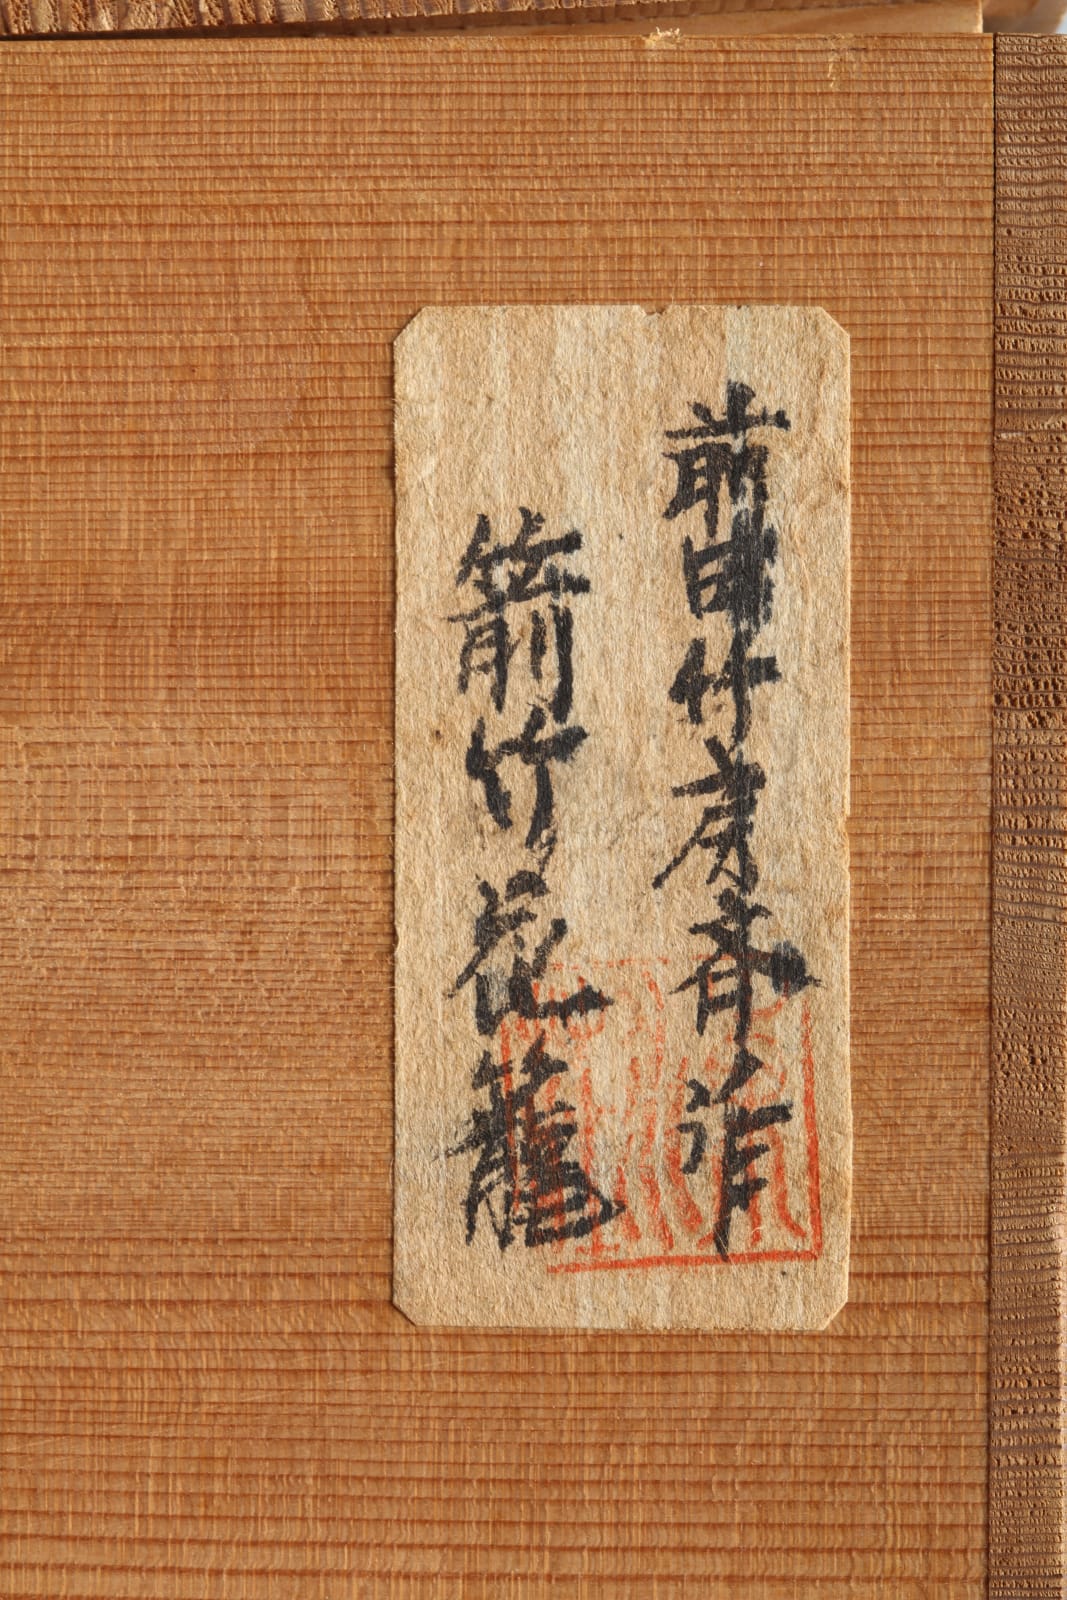 前田竹房斉作
箭竹花籠